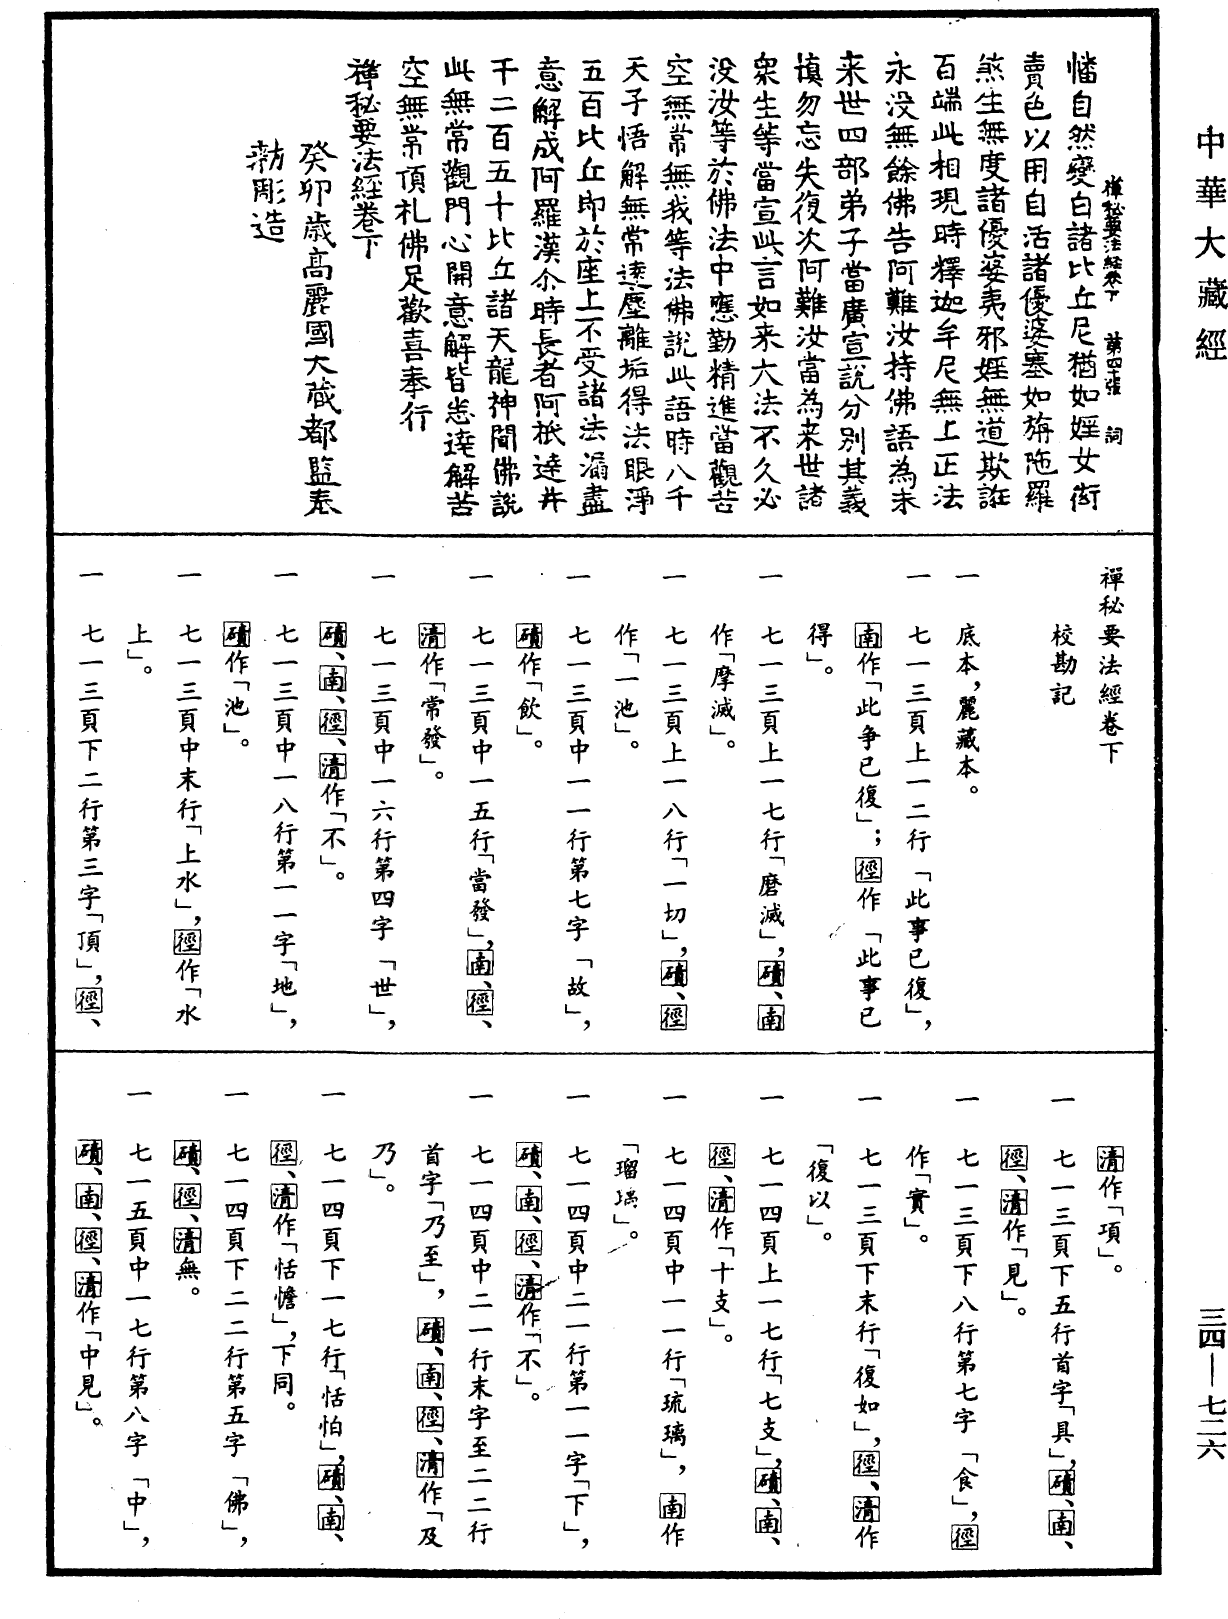 中華大藏經
禪秘要法經卷下　第四十張　詞
幡自然變白諸比丘尼猶如婬女衒
賣色以用自活諸優婆塞如旃陁羅
煞生無度諸優婆夷邪婬無道欺誑
百端此相現時釋迦牟尼無上正法
永没無餘佛告阿難汝持佛語為未
来世四部弟子當廣宣說分別其義
慎勿忘失復次阿難汝當為来世諸
衆生等當宣此言如来大法不久必
没汝等於佛法中應勤精進當觀苦
空無常無我等法佛說此語時八千
天子悟解無常遠塵離垢得法眼淨
五百比丘即於座上不受諸法漏盡
意解成阿羅漢尒時長者阿祇達并
千二百五十比丘諸天龍神聞佛說
此無常觀門心開意解皆悉達解苦
空無常頂礼佛足歡喜奉行
禪秘要法經卷下
癸卯歲高麗國大藏都監奉
勑彫造
禪秘要法經卷下
校勘記
一　底本，麗藏本。
一　七一三頁上一二行「此事已復」，
南作「此争已復」；徑作「此事已
得」。
一　七一三頁上一七行「磨滅」，磧、南
作「摩滅」。
一　七一三頁上一八行「一切」，磧、徑
作「一池」。
一　七一三頁中一一行第七字「故」，
磧作「飲」。
一　七一三頁中一五行「當發」，南、徑、
清作「常發」。
一　七一三頁中一六行第四字「世」，
磧、南、徑、清作「不」。
一　七一三頁中一八行第一一字「地」，
磧作「池」。
一　七一三頁中末行「上水」，徑作「水
上」。
一　七一三頁下二行第三字「頂」，徑、
清作「項」。
一　七一三頁下五行首字「具」，磧、南、
徑、清作「見」。
一　七一三頁下八行第七字「食」，徑
作「實」。
一　七一三頁下末行「復如」，徑、清作
「復以」。
一　七一四頁上一七行「七支」，磧、南、
徑、清作「十支」。
一　七一四頁中一一行「琉璃」，南作
「瑠璃」。
一　七一四頁中二一行第一一字「下」，
磧、南、徑、清作「不」。
一　七一四頁中二一行末字至二二行
首字「乃至」，磧、南、徑、清作「及
乃」。
一　七一四頁下一七行「恬怕」，磧、南、
徑、清作「恬憺」，下同。
一　七一四頁下二二行第五字「佛」，
磧、徑、清無。
一　七一五頁中一七行第八字「中」，
磧、南、徑、清作「中見」。
三四—七二六